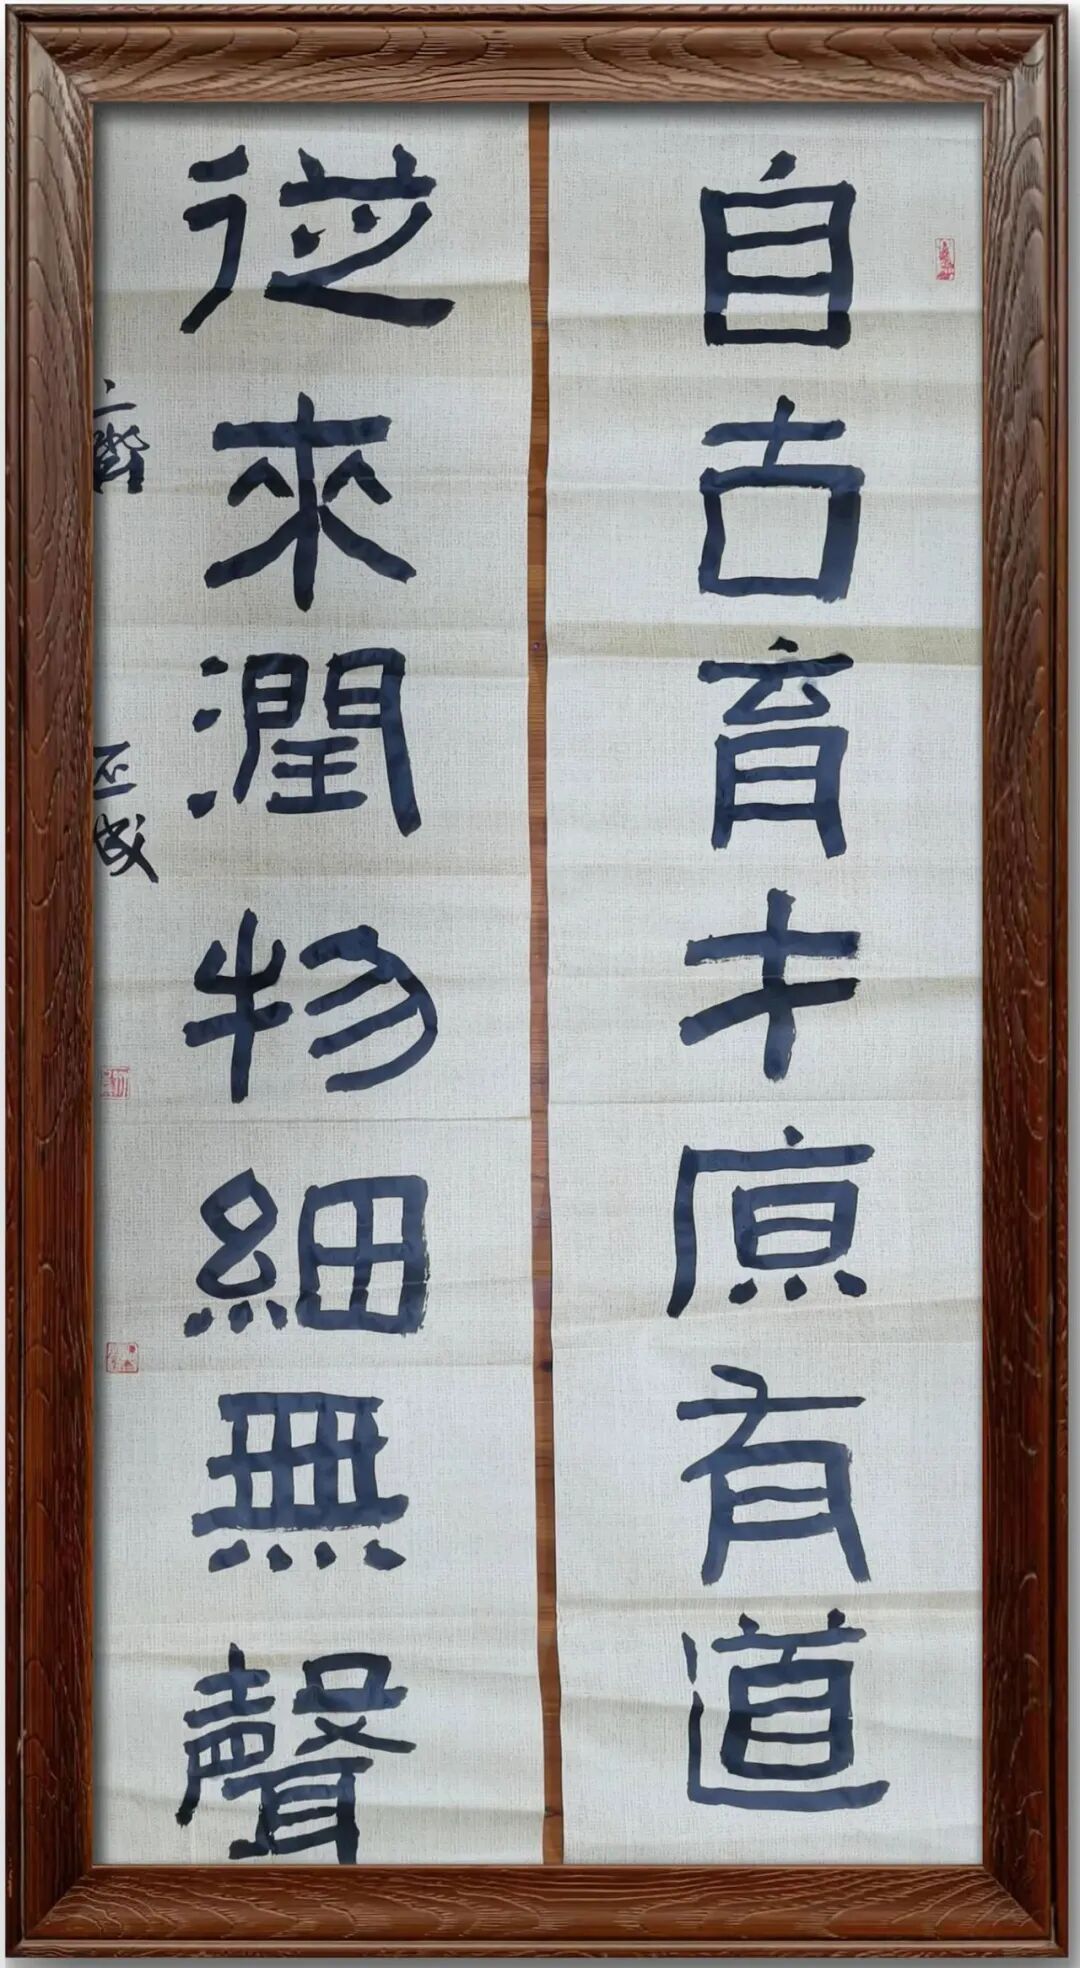 自古育才原有道
從來潤物細無聲